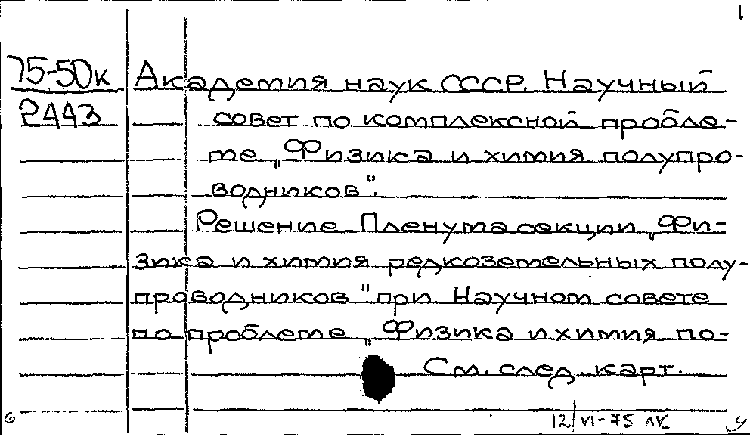 1
75-50к Академия наук СССР. Научный
2443 совет по комплексной пробле-
ме „Физика и химия полупро-
водников".
Решение Пленума секции „Фи-
зика и химия редкоземельных полу-
проводников" при Научном совете
по проблеме „Физика и химия по-
См. след. карт.
12/VI-75